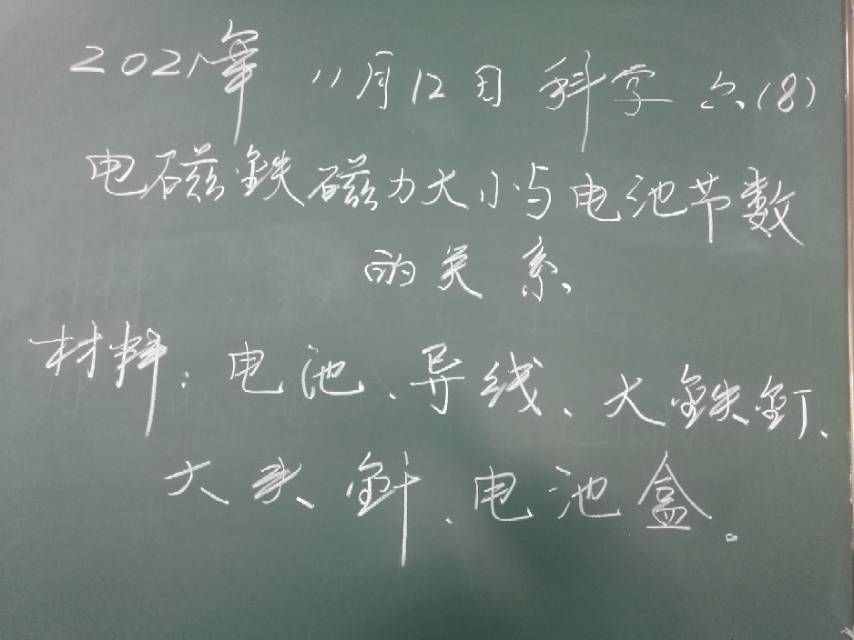 2021年 11月12日 科学 六(8)
电磁鉄磁力大小与电池节数
的关系
材料:电池、导线、大鉄釘、
大头針、电池盒。